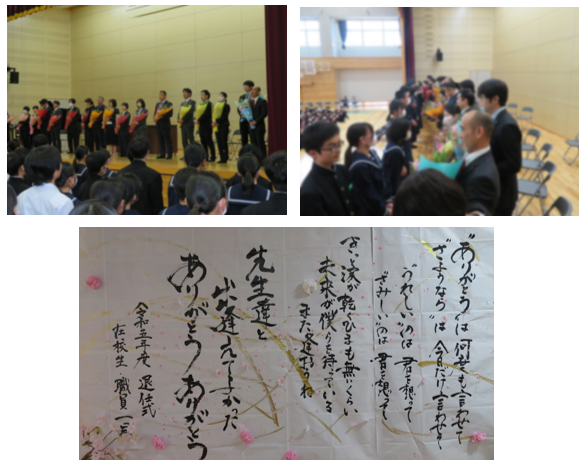 "ありがとう"は何度も言わせて
"さようなら"は今日だけ言わせて
"うれしい"のは 君を想って
"さみしい"のは 君を想って
涙が乾くひまも無いくらい
未来が僕らを待っている
また逢おうね
先生達と
出逢えてよかった
ありがとう ありがとう
令和五年度 退任式
在校生 職員一同